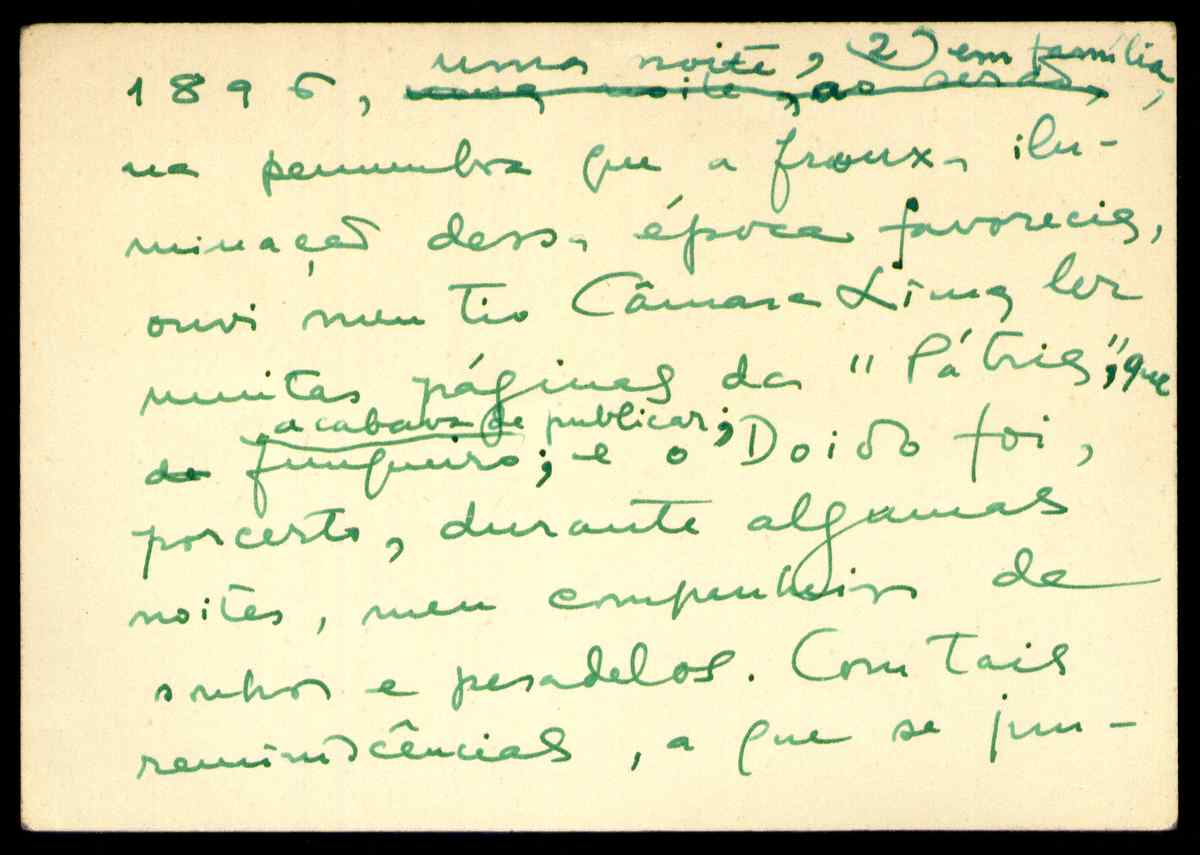 uma noite, 2) em família,
1896, uma noite, ao serão,
na penumbra que a frouxa ilu-
minação dessa época favorecia,
ouvi meu tio Câmara Lima ler
muitas páginas da "Pátria", que
acabava de publicar;
de Junqueiro; e o Doido foi,
porcerto, durante algumas
noites, meu companheiro de
sonhos e pesadelos. Com tais
reminiscências, a que se jun-